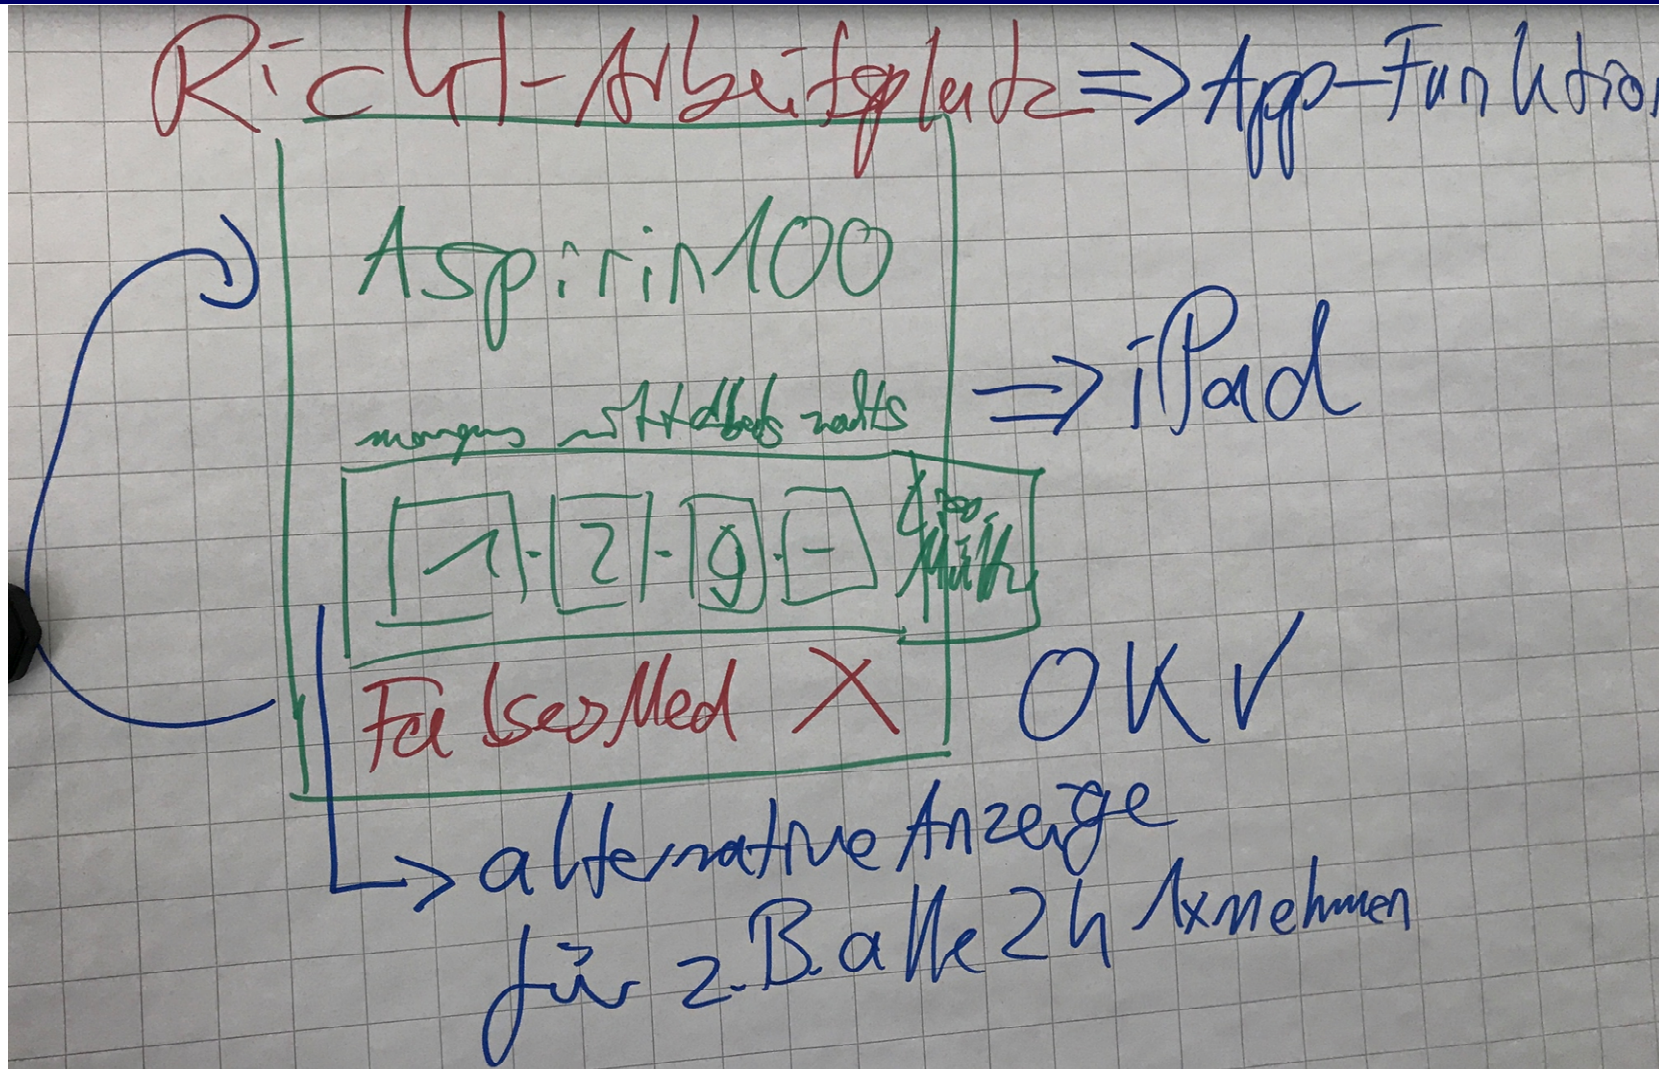 Richt-Arbeitsplatz => App-Funktion
Aspirin 100
=> iPad
morgens mittags abds nachts
1 - 2 - 9 - -
Falsches Med X
OK ✓
alternative Anzeige
für z.B. alle 2h 1x nehmen